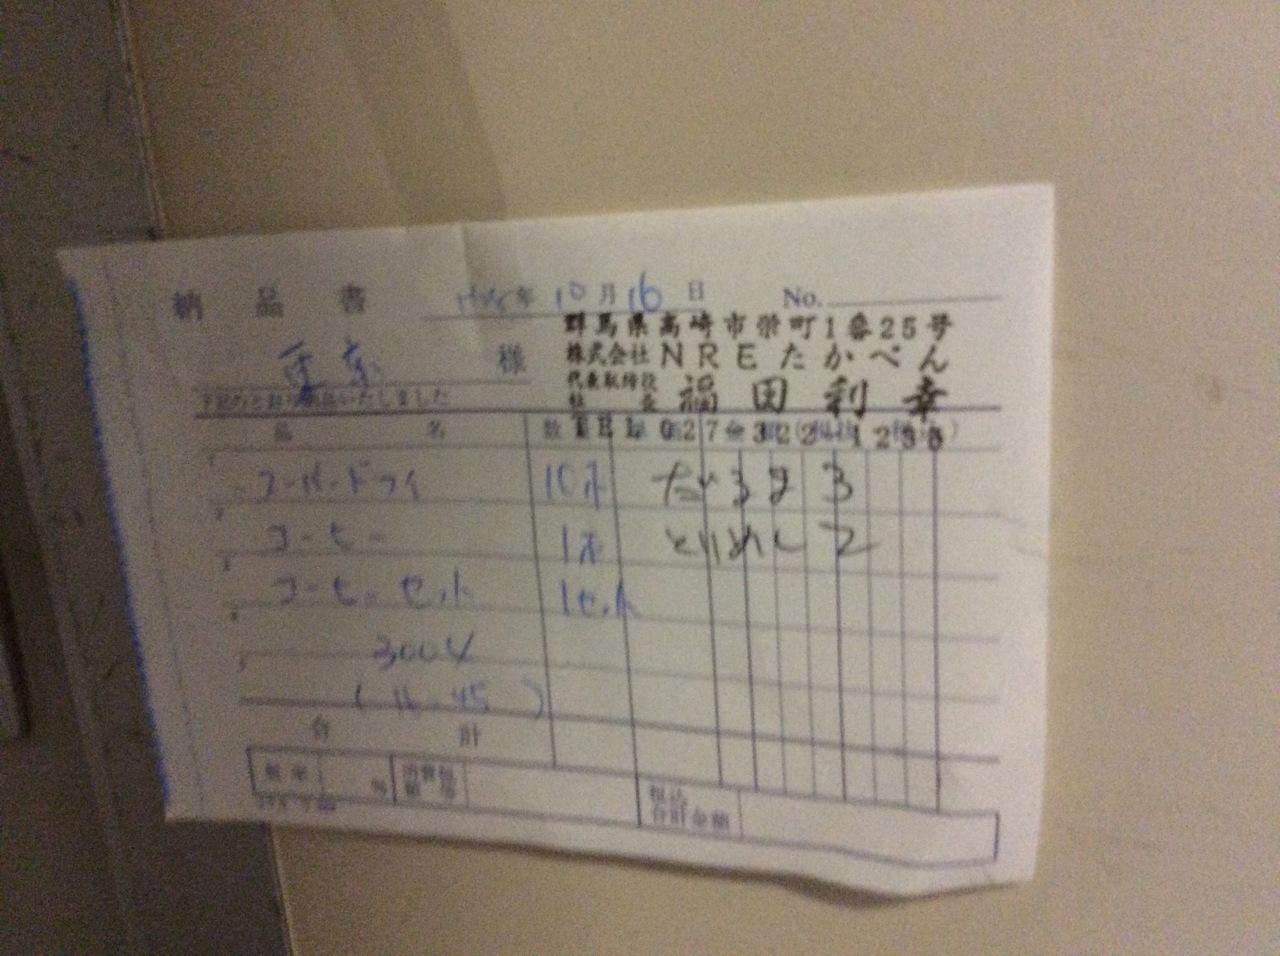 納品書 年 10月16日 No.
群馬県高崎市栄町1番25号
東京 様 株式会社NREたかべん
代表取締役社長 福田利幸
下記のとおり納品いたしました
TEL 027-322-1235
品名 数
ドライ 10本 だるま 3
コーヒー 1本 とりめし 2
コーヒーセット 1セット
合計
税率 % 消費税額等 税込合計金額